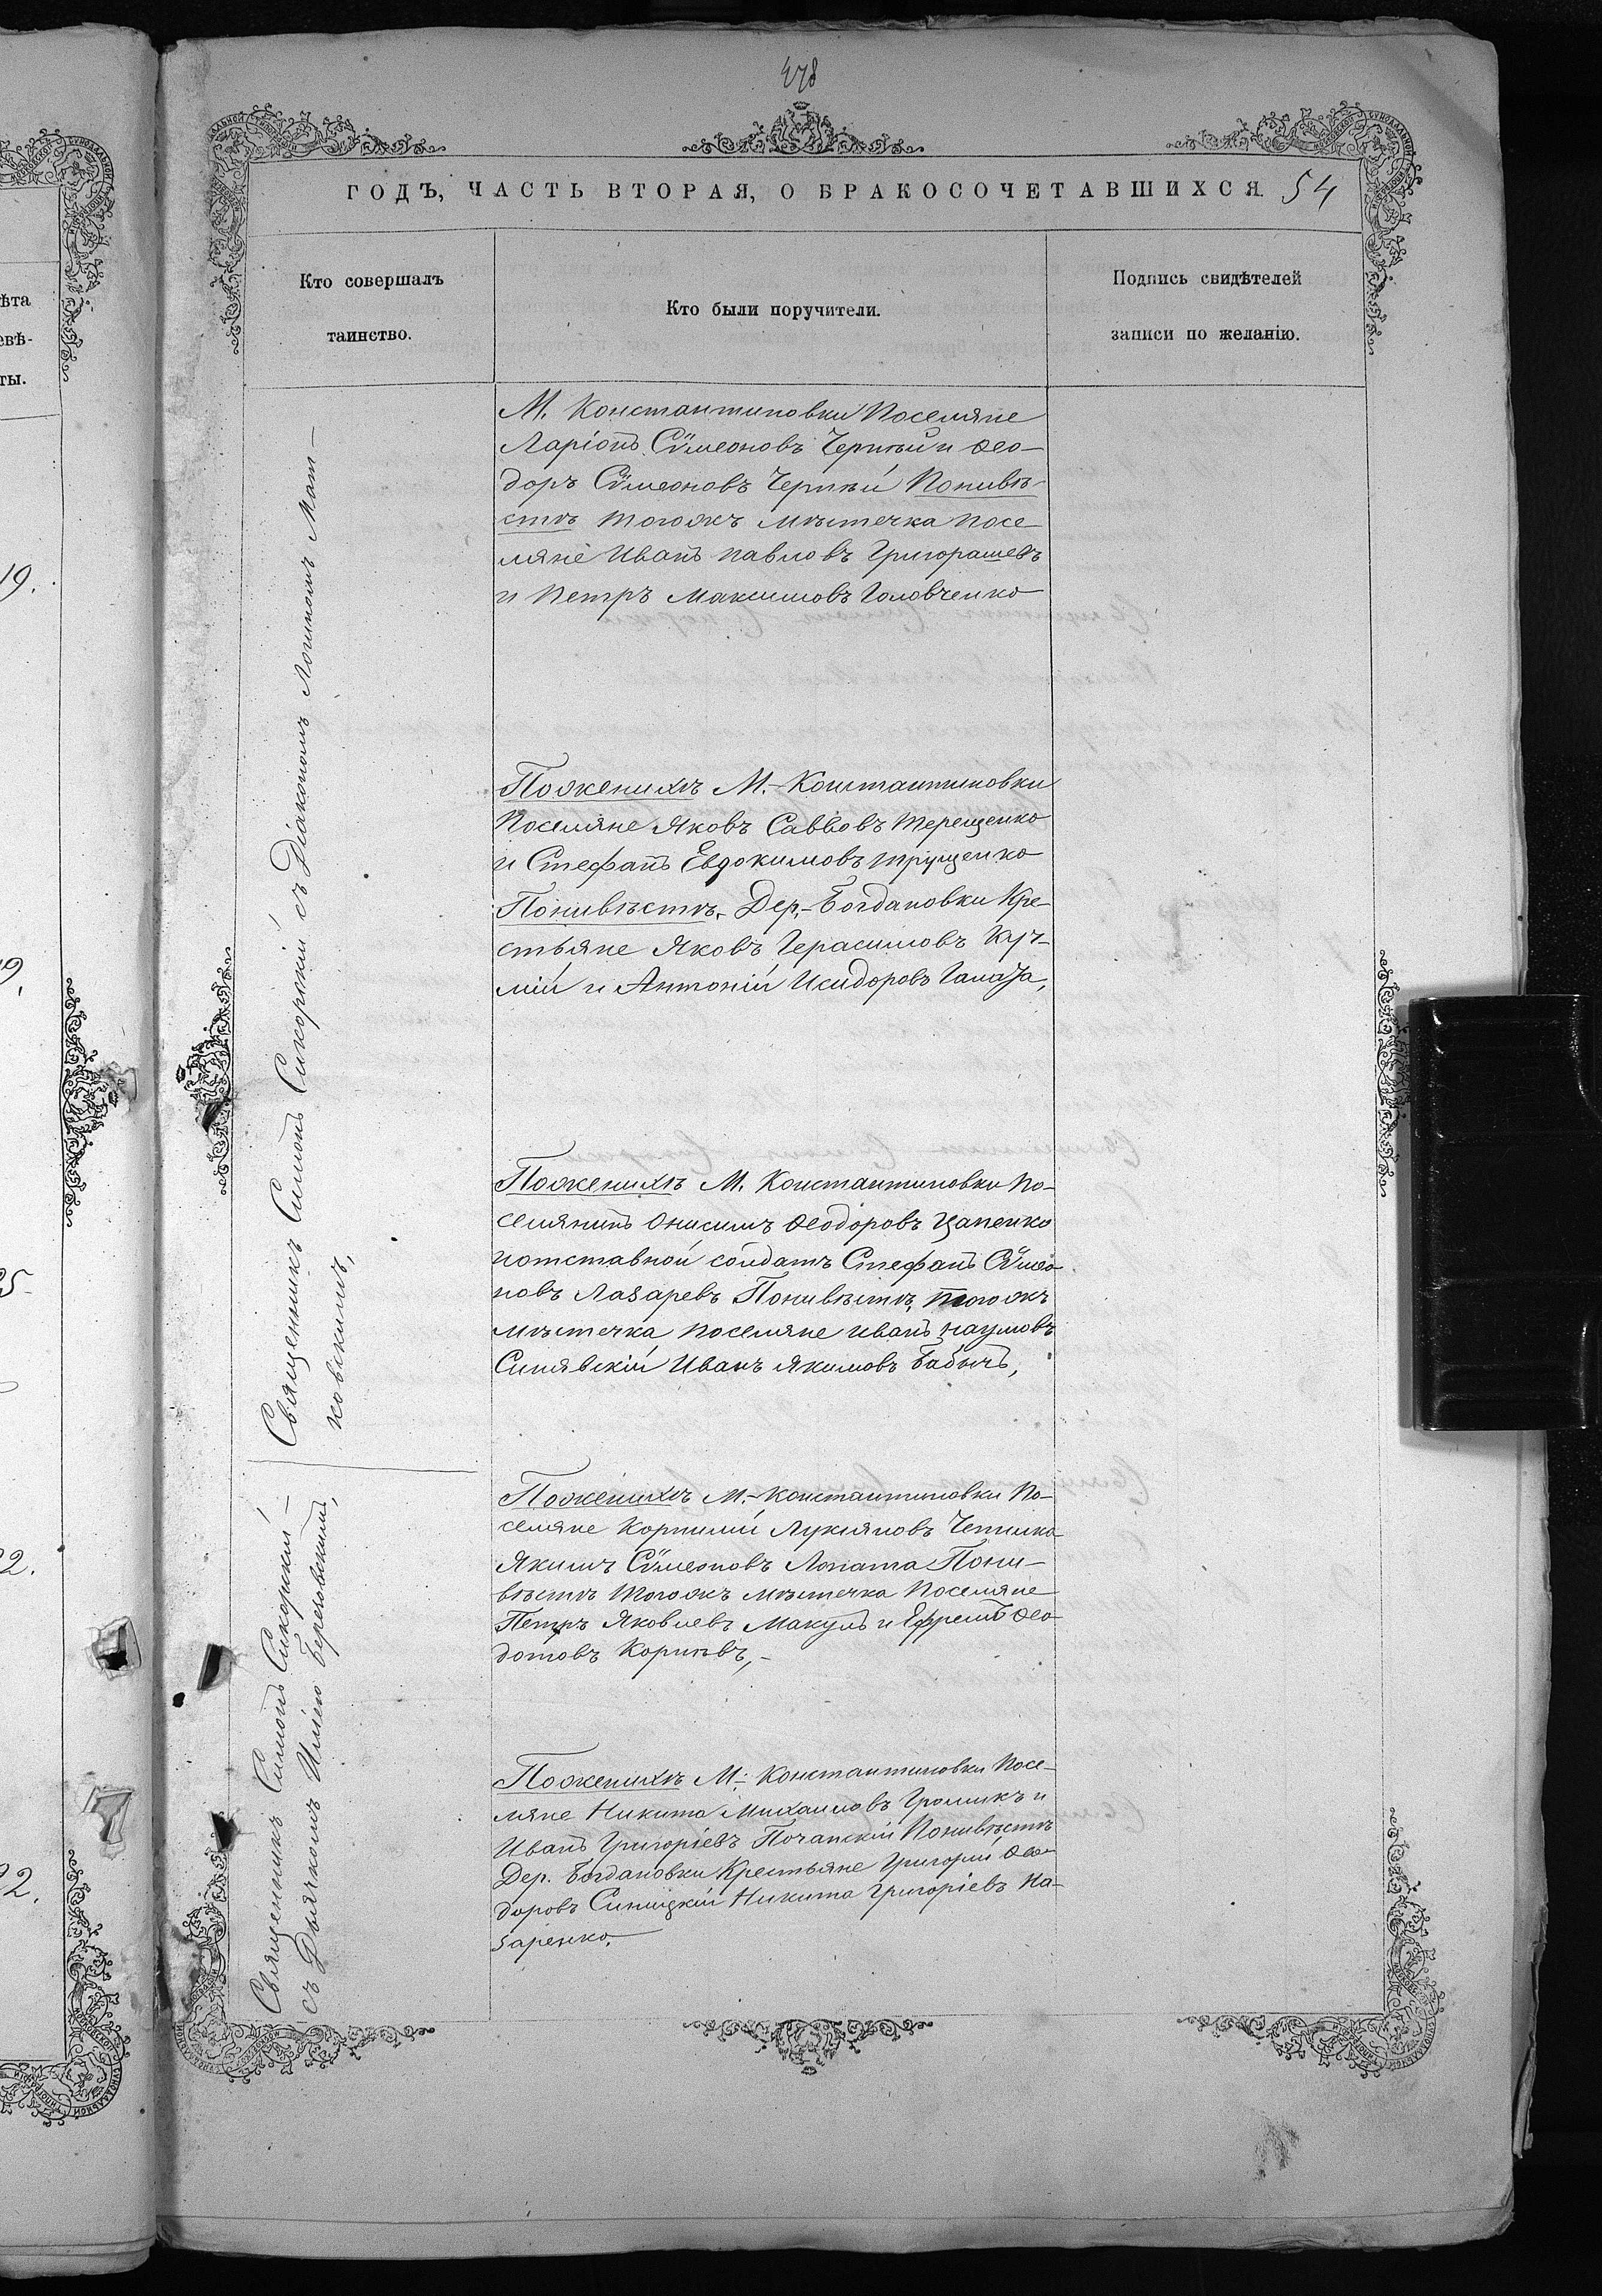 478
ГОДЪ, ЧАСТЬ ВТОРАЯ, О БРАКОСОЧЕТАВШИХСЯ. 54
Кто совершалъ
таинство.
Кто были поручители.
Подпись свидѣтелей
записи по желанію.
Священникъ Симонъ Сикорскій съ Діакономъ Логиномъ Мат-
ковскимъ,
Священникъ Симонъ Сикорскій-
съ Дьячкомъ Иліею Береговскимъ,
М. Константиновки Поселяне
Ларіонъ Сѵмеоновъ Черный и Ѳео-
доръ Сѵмеоновъ Черный Поневѣ-
стѣ тогожъ мѣстечка посе-
ляне Иванъ Павловъ Григорашевъ
и Петръ Максимовъ Головченко
Пожених М.-Константиновки
Поселяне Яковъ Саввовъ Терещенко
и Стефанъ Евдокимовъ Трущенко
Поневѣстѣ. Дер,-Богдановки Кре-
стьяне Яковъ Герасимовъ Куч-
мій и Антоній Исидоровъ
Поженихѣ М. Константиновки По-
селянинъ Онисимъ Ѳеодоровъ Цапенко
иотставной солдатъ Стефанъ Сѵмео-
новъ Лазаревъ Поневѣстѣ, тогожъ
мѣстечка поселяне Иванъ Наумовъ
Синявскій Иванъ Якимовъ Бабичъ,
Поженихѣ М.-Константиновки По-
селяне Корнилій Лукіяновъ
Якимъ Сѵмеоновъ Лопата Поне-
вѣстѣ тогожъ мѣстечка Поселяне
Петръ Яковлевъ Макулъ и Ефремъ Ѳео-
дотовъ
Поженихѣ М.- Константиновки Посе-
ляне Никита Михаиловъ и
Иванъ Григоріевъ Почапскій Поневѣстѣ
Дер. Богдановки Крестьяне Григорій Ѳео-
доровъ Синицкій Никита Григоріевъ На-
заренко.
ѣта
евѣ-
ты.
19.
19,
25
22.
22.